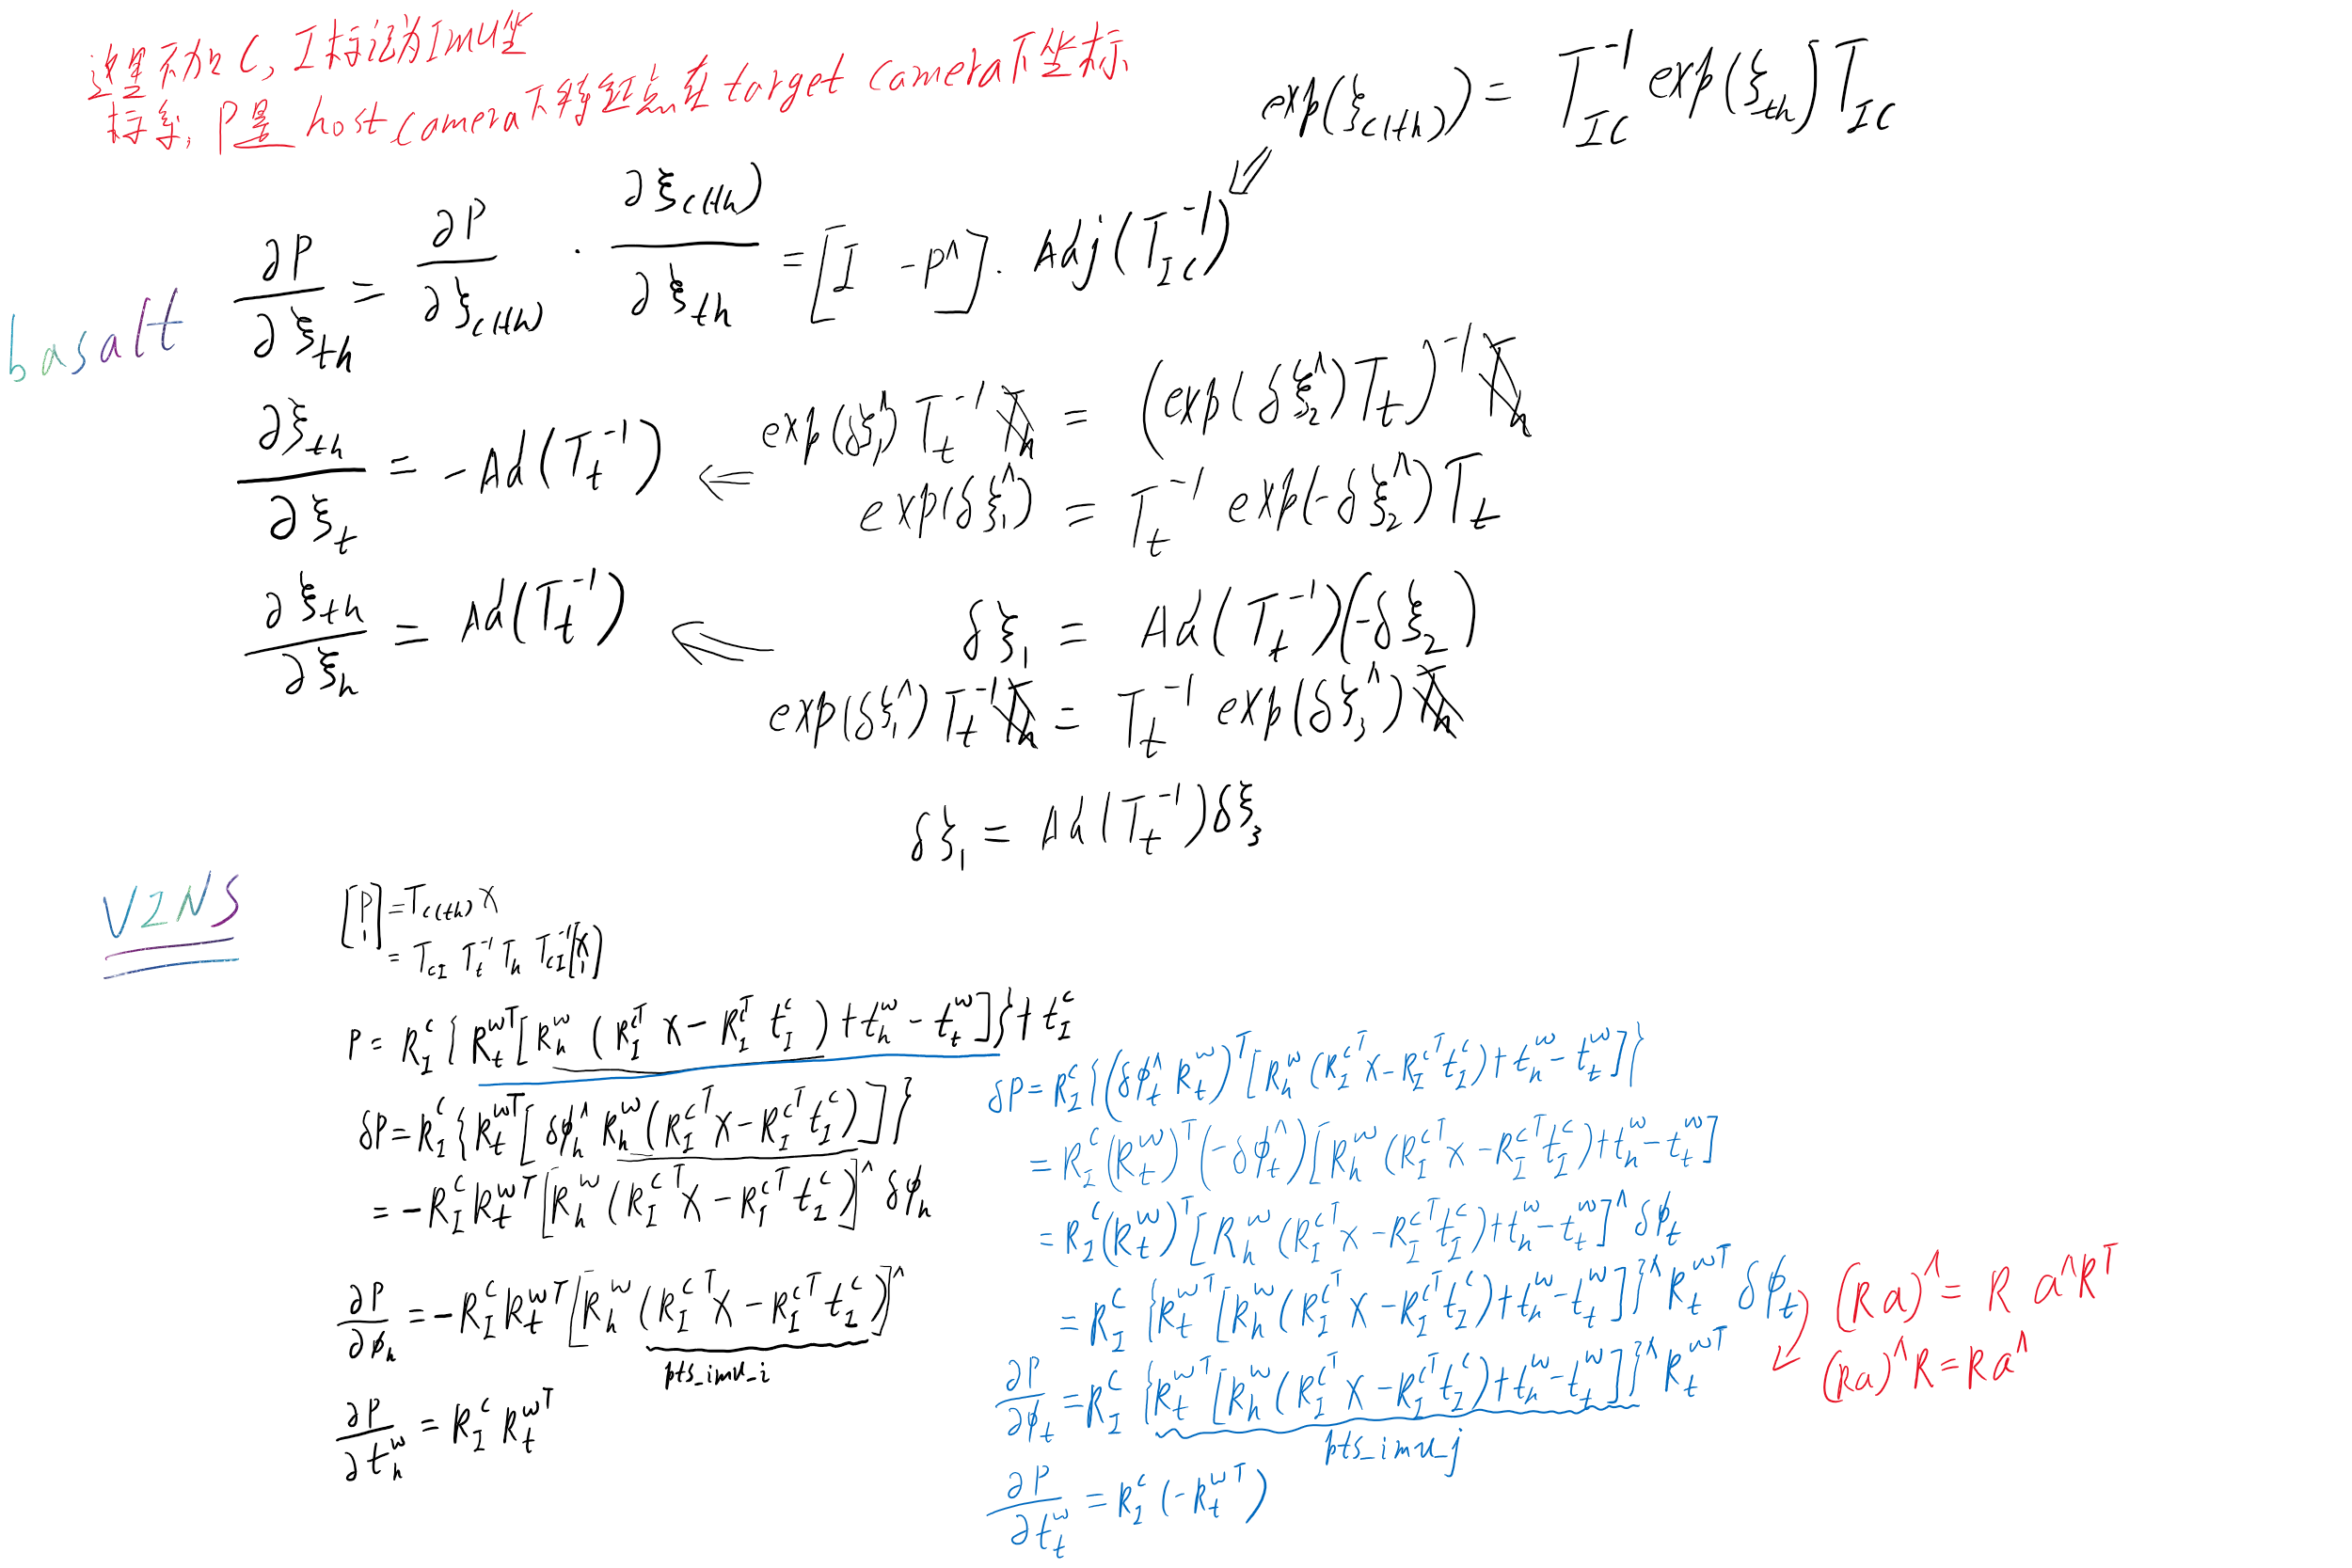 这里不加C, I标记为Imu坐
标系, P是 host camera下特征点在 target camera下坐标
exp(ξ_{c(th)}) = T_{IC}^{-1} exp(ξ_{th}) T_{IC}
basalt
∂P/∂ξ_{th} = ∂P/∂ξ_{c(th)} · ∂ξ_{c(th)}/∂ξ_{th} = [I -P^∧] · Adj(T_{IC}^{-1})
∂ξ_{th}/∂ξ_t = -Ad(T_t^{-1}) ⇐ exp(δξ_1^∧) T_t^{-1} T_h = (exp(δξ_2^∧) T_t)^{-1} T_h
exp(δξ_1^∧) = T_t^{-1} exp(-δξ_2^∧) T_t
∂ξ_{th}/∂ξ_h = Ad(T_t^{-1}) ⇐ δξ_1 = Ad(T_t^{-1})(-δξ_2)
exp(δξ_1^∧) T_t^{-1} T_h = T_t^{-1} exp(δξ_3^∧) T_h
δξ_1 = Ad(T_t^{-1}) δξ_3
VINS
[P 1] = T_{c(th)} X
= T_{CI} T_t^{-1} T_h T_{CI}^{-1} [X 1]
P = R_I^C {R_t^{wT} [R_h^w (R_I^{CT} X - R_I^{CT} t_I^C) + t_h^w - t_t^w]} + t_I^C
δP = R_I^C {R_t^{wT} [δϕ_h^∧ R_h^w (R_I^{CT} X - R_I^{CT} t_I^C)]}
= -R_I^C R_t^{wT} [R_h^w (R_I^{CT} X - R_I^{CT} t_I^C)]^∧ δϕ_h
∂P/∂ϕ_h = -R_I^C R_t^{wT} [R_h^w (R_I^{CT} X - R_I^{CT} t_I^C)]^∧
pts_imu_i
∂P/∂t_h^w = R_I^C R_t^{wT}
δP = R_I^C {(δϕ_t^∧ R_t^w)^T [R_h^w (R_I^{CT} X - R_I^{CT} t_I^C) + t_h^w - t_t^w]}
= R_I^C (R_t^w)^T (-δϕ_t^∧) [R_h^w (R_I^{CT} X - R_I^{CT} t_I^C) + t_h^w - t_t^w]
= R_I^C (R_t^w)^T [R_h^w (R_I^{CT} X - R_I^{CT} t_I^C) + t_h^w - t_t^w]^∧ δϕ_t
= R_I^C {R_t^{wT} [R_h^w (R_I^{CT} X - R_I^{CT} t_I^C) + t_h^w - t_t^w]}^∧ R_t^{wT} δϕ_t
(Ra)^∧ = R a^∧ R^T
(Ra)^∧ R = R a^∧
∂P/∂ϕ_t = R_I^C {R_t^{wT} [R_h^w (R_I^{CT} X - R_I^{CT} t_I^C) + t_h^w - t_t^w]}^∧ R_t^{wT}
pts_imu_j
∂P/∂t_t^w = R_I^C (-R_t^{wT})